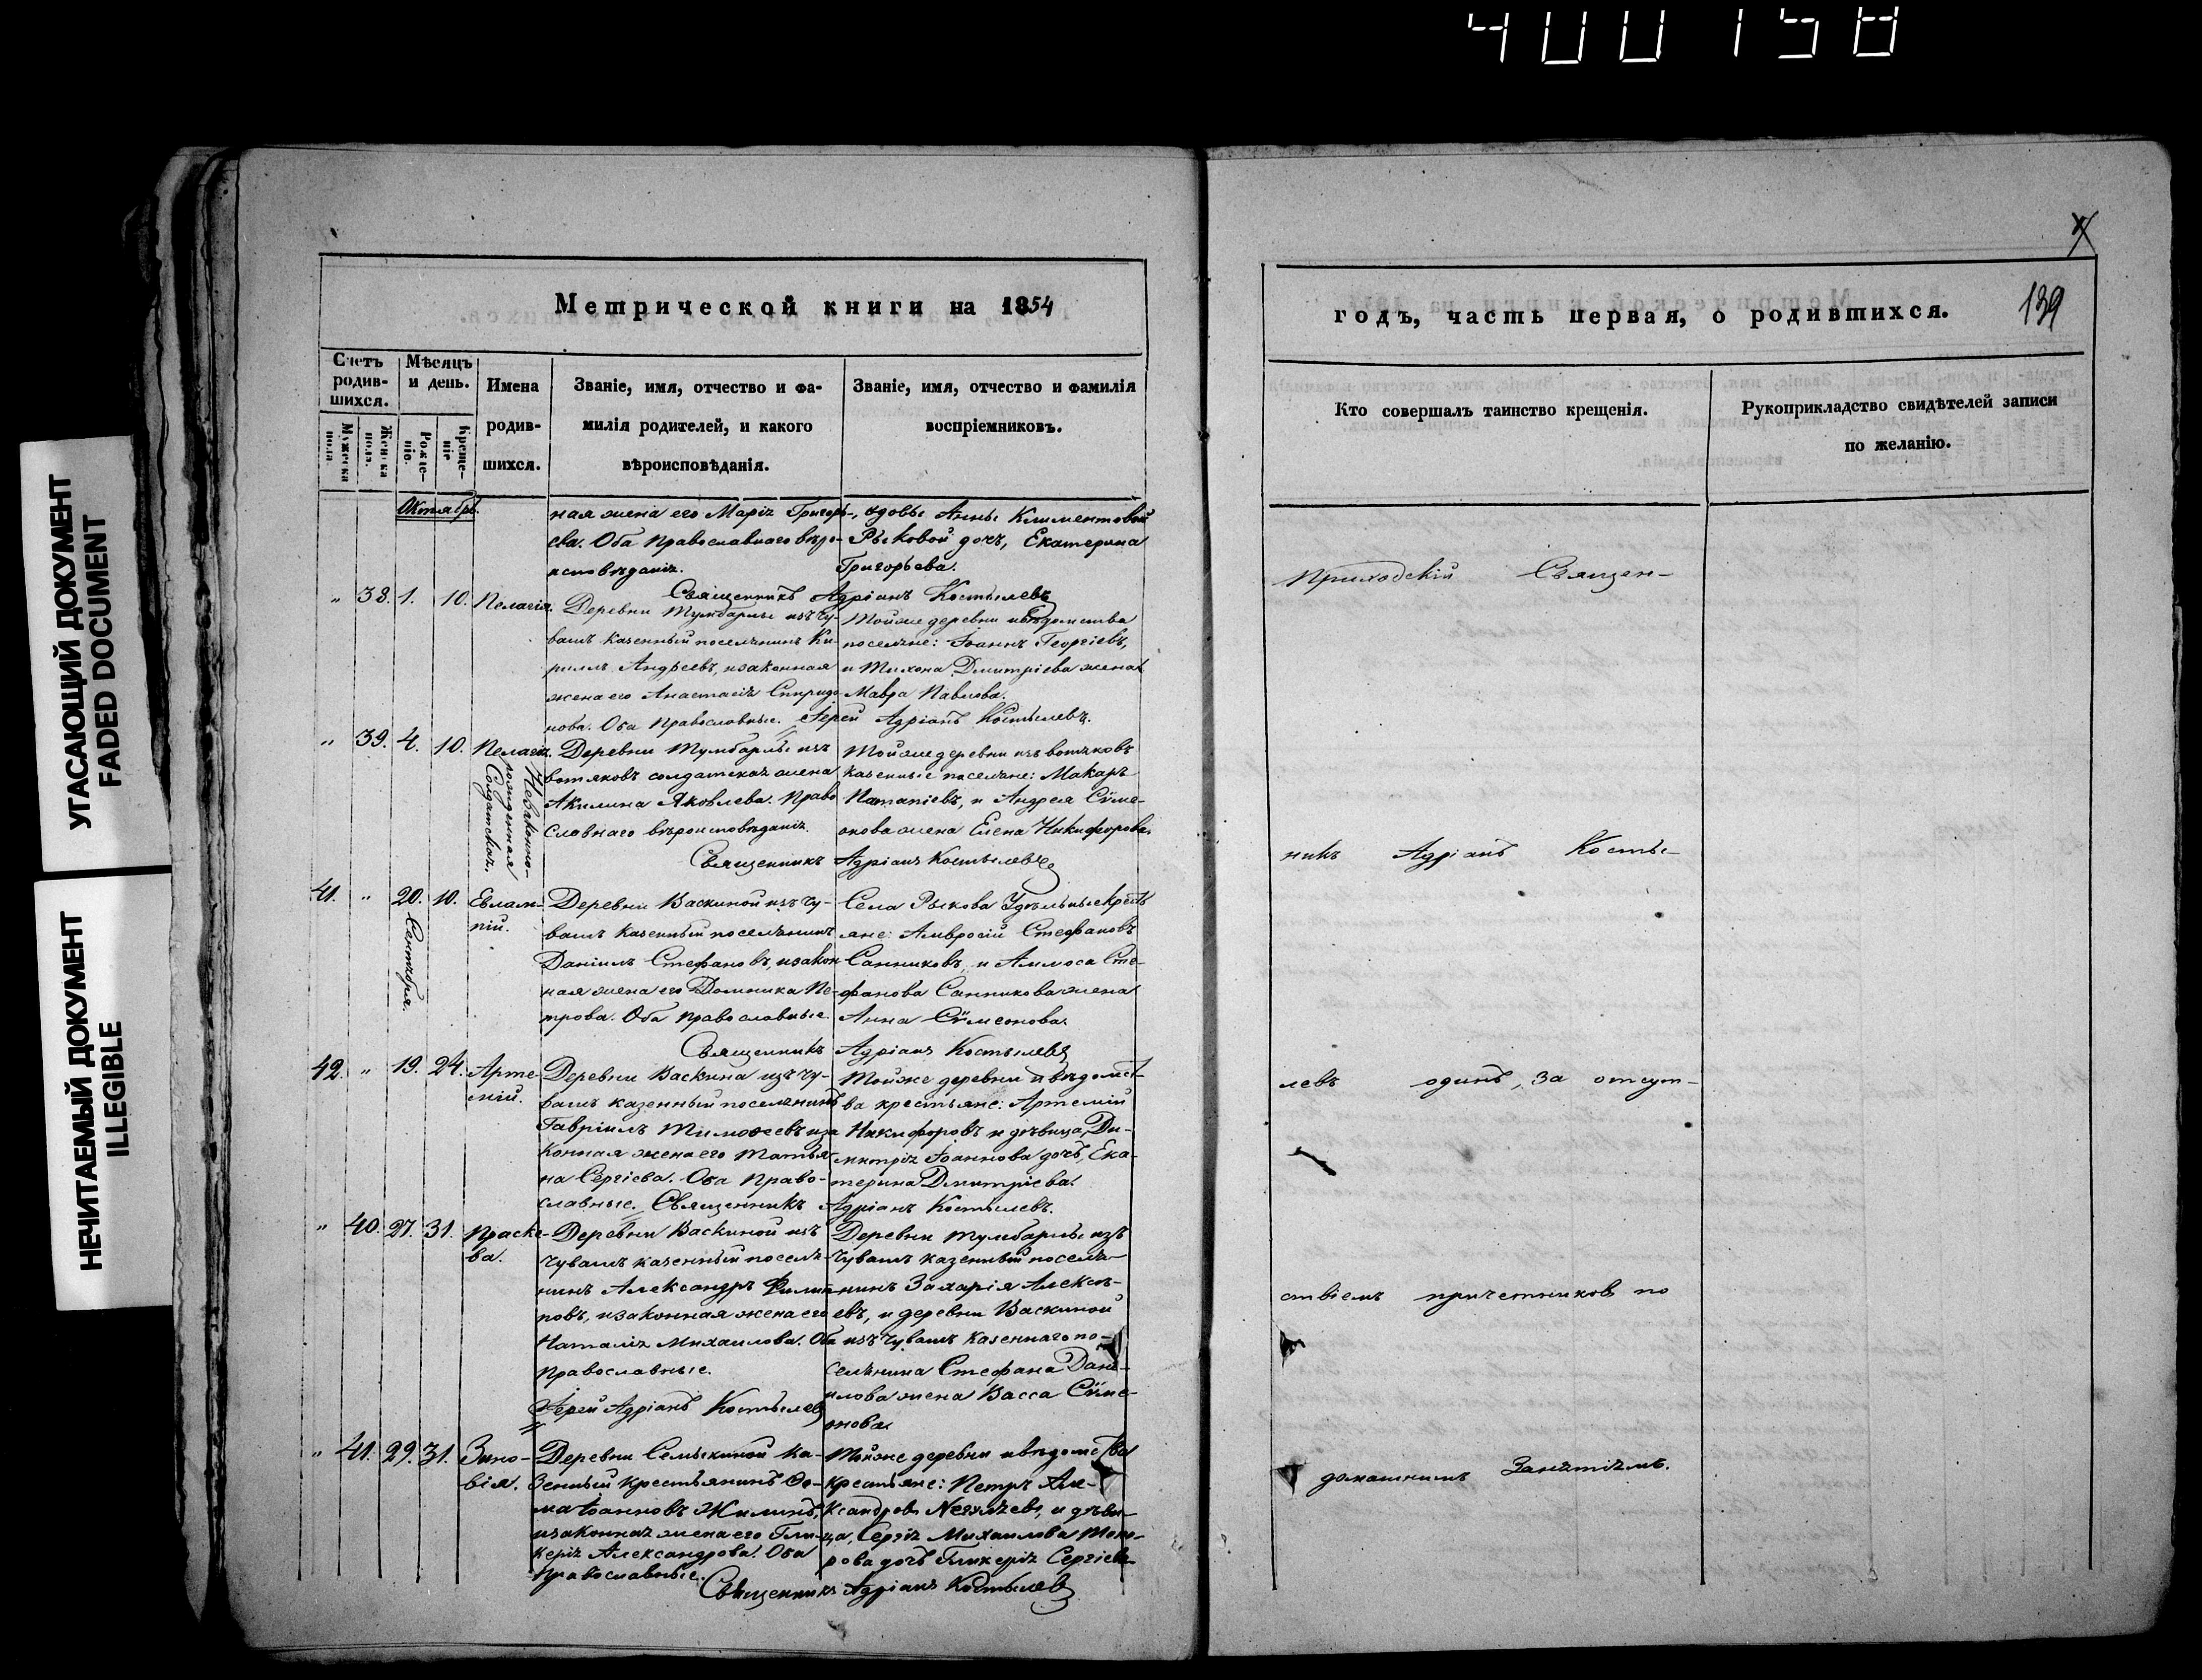 400158
УГАСАЮЩИЙ ДОКУМЕНТ
FADED DOCUMENT
НЕЧИТАЕМЫЙ ДОКУМЕНТ
ILLEGIBLE
Метрической книги на 1854
Счетъ родив-шихся.
Мѣсяцъ и день.
Имена родив-шихся.
Званіе, имя, отчество и фа-
милія родителей, и какого
вѣроисповѣданія.
Званіе, имя, отчество и фамилія
воспріемниковъ.
Мужеска пола
Женска пола.
Рожде-ніе.
Креще-ніе
Октябрь.
ная жена его Марія Григорь-
ева. Оба православнаго вѣро-
исповѣданія.
вдовы Анны Климентовой
Рыковой дочь, Екатерина
Григорьева.
Священникъ Адріанъ Костылевъ
" 38. 1. 10. Пелагія.
Деревни Тумбарлы изъ чу-
вашъ казенный поселянинъ Ки-
риллъ Андреевъ, и законная
жена его Анастасія Спиридо-
нова. Оба православные.
Тойже деревни и вѣдомства
поселяне: Іоаннъ Георгіевъ,
и Тихона Дмитріева жена
Мавра Павлова.
Іерей Адріанъ Костылевъ.
" 39. 4. 10. Пелагія.
Незаконно-
рожденная
Солдатская.
Деревни Тумбарлы изъ
вотяковъ солдатская жена
Акилина Яковлева. Право
славнаго вѣроисповѣданія.
Тойже деревни изъ вотяковъ
казенные поселяне: Макаръ
Потапіевъ, и Андрея Сѵме-
онова жена Елена Никифорова.
Священникъ Адріанъ Костылевъ
41. " 20. 10. Евлам-
пій.
Сентября.
Деревни Васкиной изъ чу-
вашъ казенный поселянинъ
Даніилъ Стефановъ, и закон
ная жена его Домника Пе-
трова. Оба православные.
Села Рыкова Удѣльные крестья
яне: Амвросій Стефановъ
Санниковъ, и Аммоса Сте-
фанова Санникова жена
Анна Сѵмеонова.
Священникъ Адріанъ Костылевъ
42. " 19. 24. Арте-
мій.
Деревни Васкина изъ чу-
вашъ казенный поселянинъ
Гавріилъ Тимоѳеевъ и за
конная жена его Татья
на Сергіева. Оба право-
славные.
Тойже деревни и вѣдомст-
ва крестьяне: Артемій
Никифоровъ и дѣвица, Ди-
митрія Іоаннова дочь, Ека-
терина Дмитріева.
Священникъ Адріанъ Костылевъ.
" 40. 27. 31. Праске-
ва.
Деревни Васкиной изъ
чувашъ казенный поселя-
нинъ Александръ Филип-
повъ, и законная жена его
Наталія Михаилова. Оба
православные.
Іерей Адріанъ Костылевъ
Деревни Тумбарлы изъ
чувашъ казенный поселя-
нинъ Захарія Алексѣ-
евъ, и деревни Васкиной
изъ чувашъ казеннаго по-
селянина Стефана Дани-
илова жена Васса Сѵме-
онова.
" 41. 29. 31. Зино-
вія.
Деревни Семыкиной ка-
зенный крестьянинъ Ѳо-
ма Іоанновъ Жилинъ,
и законная жена его Гли-
керія Александрова. Оба
православные.
Тойже деревни и вѣдомства
крестьяне: Петръ Але-
ксандровъ и дѣви-
ца, Сергія Михаилова Токо-
рова дочь Гликерія Сергіева
Священникъ Адріанъ Костылевъ
годъ, часть первая, о родившихся.
139
Кто совершалъ таинство крещенія.
Рукоприкладство свидѣтелей записи
по желанію.
Приходскій Священ-
никъ Адріанъ Косты-
левъ одинъ, за отсут-
ствіемъ причетниковъ по
домашнимъ занятіямъ.